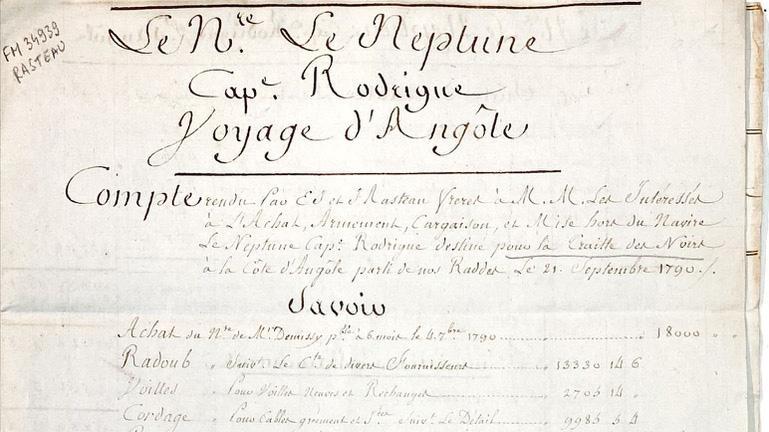 FM 34939
RASTEAU
Le N.re Le Neptune
Cap.e Rodrigue
Voyage d'Angôle
Compte rendu Par Ed et d Rasteau freres à M. M. Les Intéressés
à L'Achat, Armement, Cargaison, et Mise hors du Navire
Le Neptune Cap.e Rodrigue destiné pour la Traitte des Noirs
à la Côte d'Angôle parti de nos Raddes Le 21. Septembre 1790 ./.
Savoir
Achat du N.re de M.r Demissy p.ble à 6 mois le 4. 7.bre 1790 18000
Radoub Suiv.t Le C.te de divers Fournisseurs 13330 14 6
Voilles Pour Voilles Neuves et Rechanges 2705 14
Cordage Pour Cables grément et Suiv.t Le Détail 9985 5 4